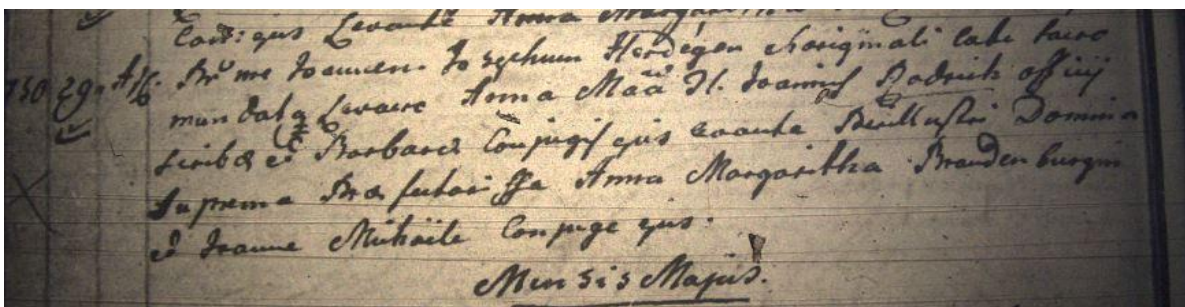 Conj: ejus Levante Anna Margaritha
750 29. Apr. Pr me Joannem Josephum Herdegen ab originali labe sacro
mundata Levare Anna Maâ fl. Joannis Rodrich officij
scribæ et Barbaræ Conjugis ejus Levante Perillustri Domina
Suprema Præfectorissa Anna Margaritha Brandenburgin
et Joanne Michaële Conjuge ejus.
Mensis Majus.